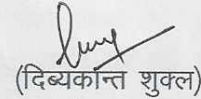 (दिब्यकान्त शुक्ल)